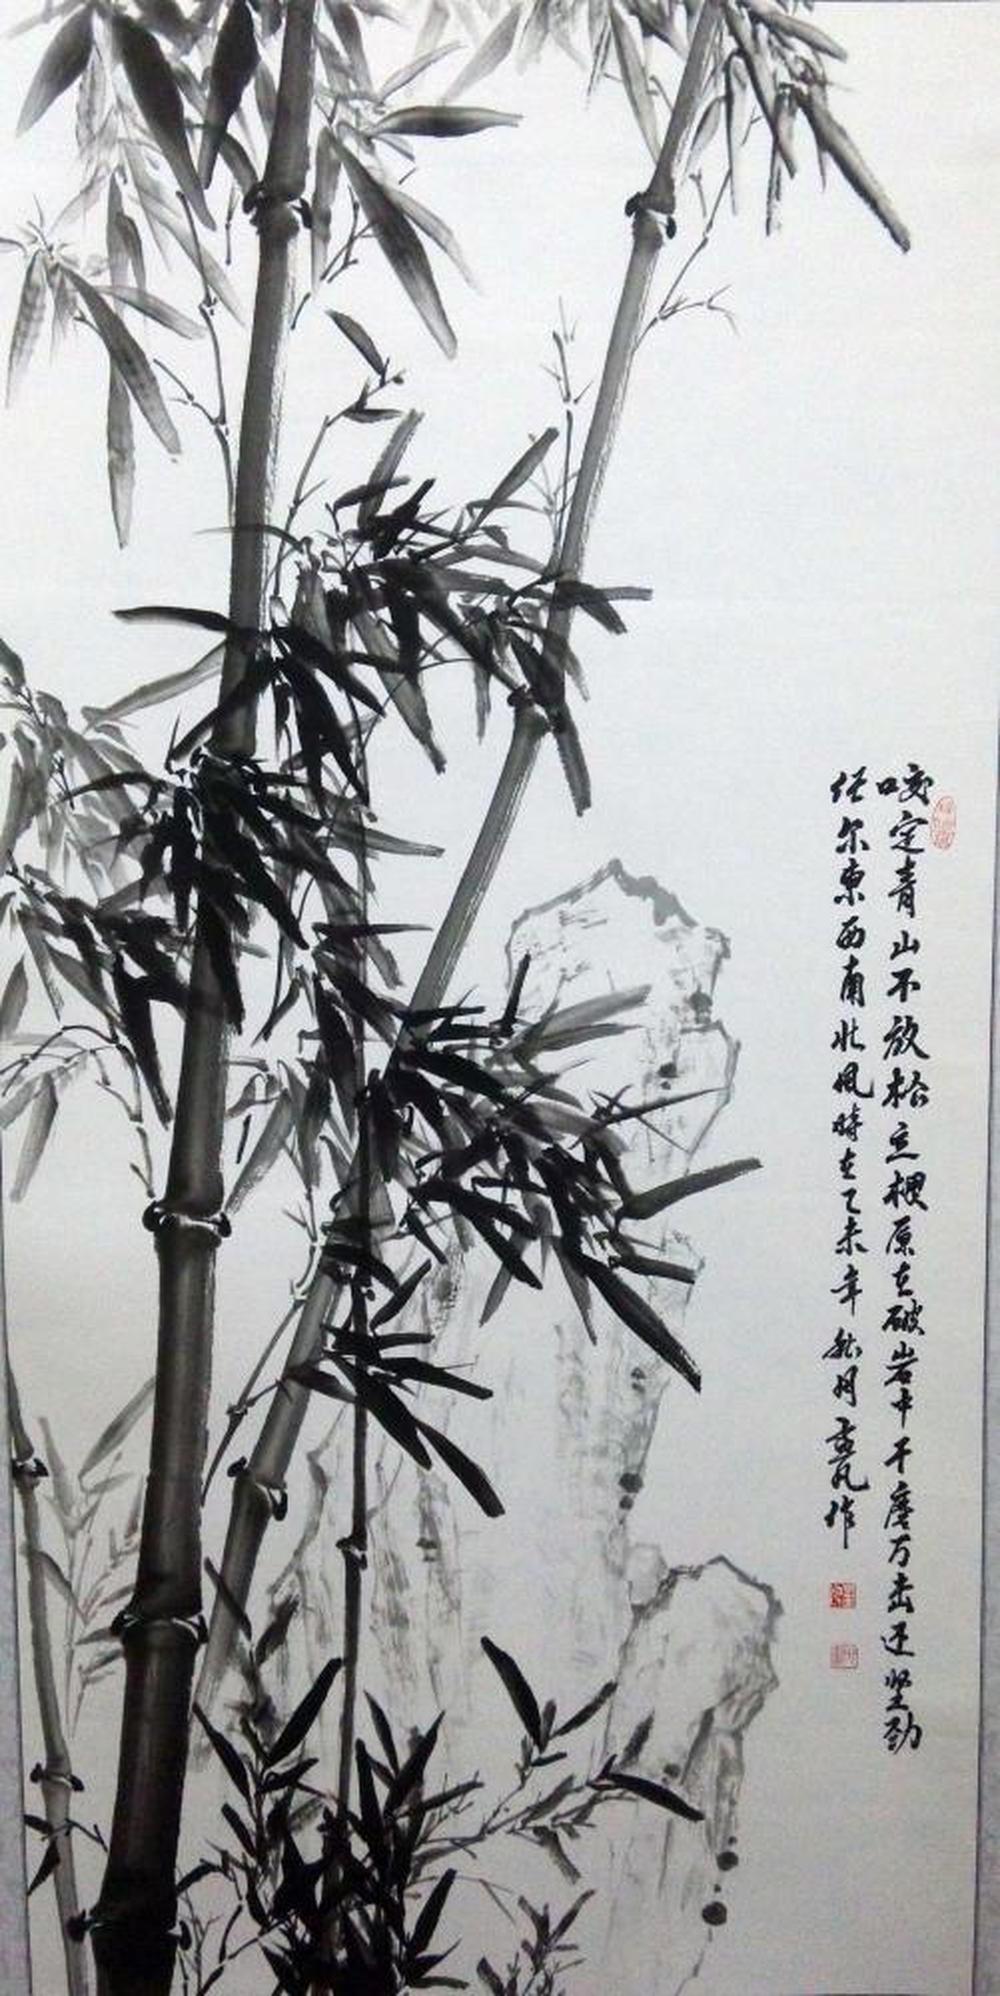 咬定青山不放松立根原在破岩中千磨万击还坚劲
任尔东西南北风時在乙未年秋月 作